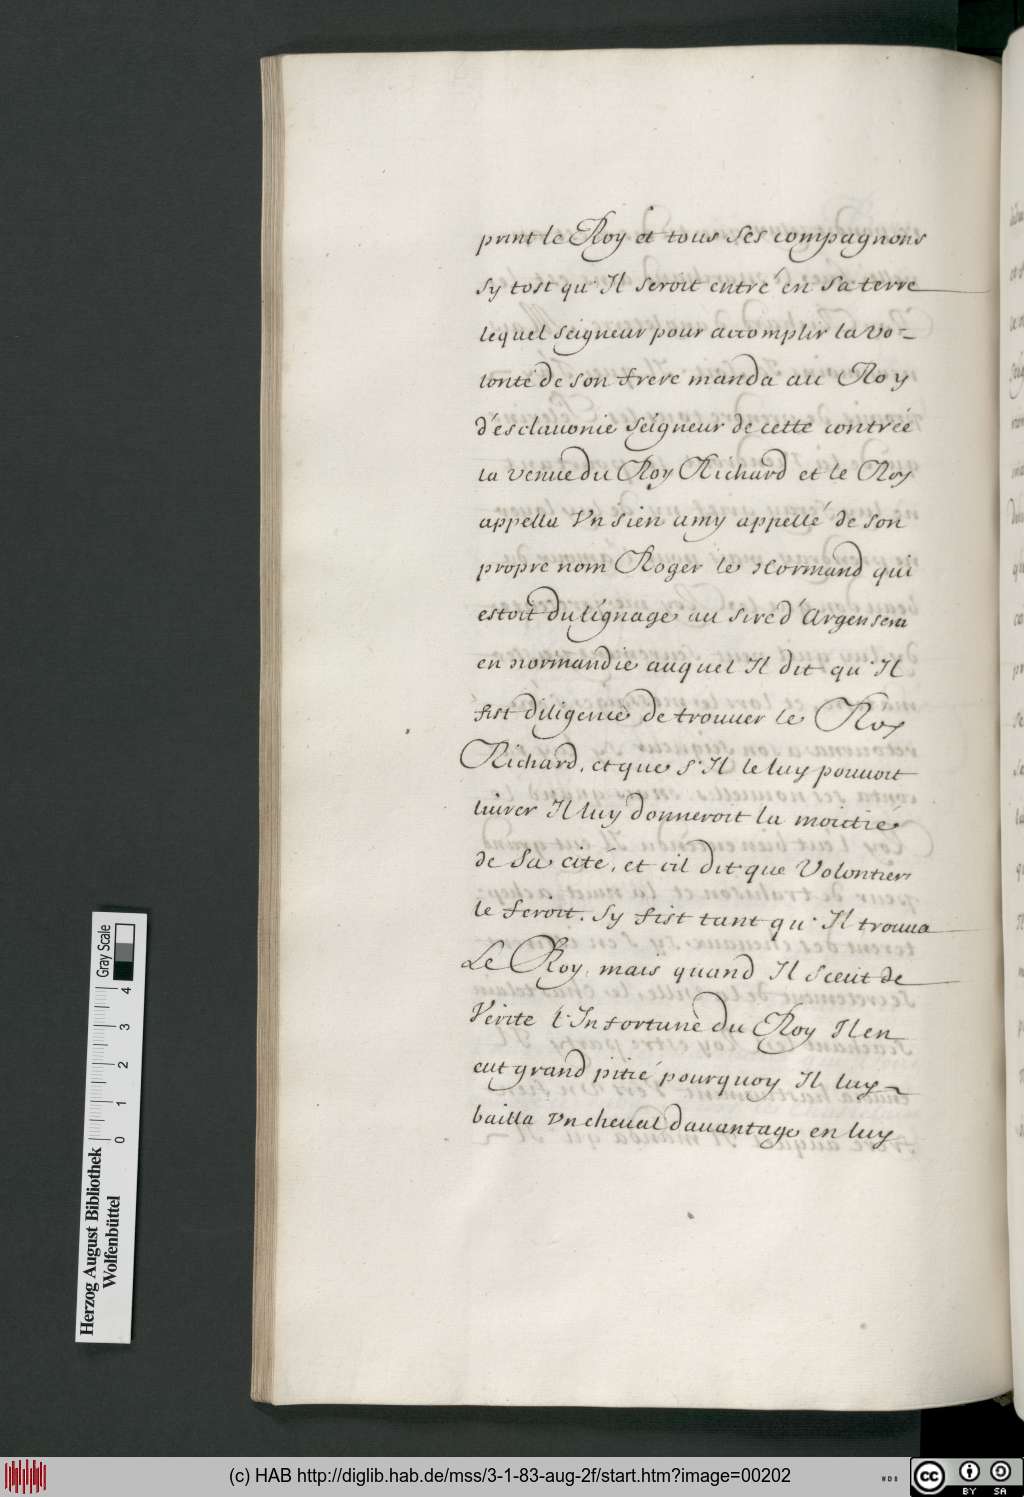 print le Roy et tous ses compagnons
sy tost qu'Il seroit entré en sa terre
lequel seigneur pour accomplir la vo-
lonté de son frere manda au Roy
d'esclauonie seigneur de cette contrée
la venue du Roy Richard et le Roy
appella Vn sien amy appellé de son
propre nom Roger le Normand qui
estoit du lignage au sire d'Argensem
en normandie auquel Il dit qu'Il
fist diligence de trouuer le Roy
Richard, et que s'Il le luy pouuoit
liurer Il luy donneroit la moictie
de sa cité, et cil dit que Volontiers
le feroit. Sy fist tant qu'Il trouua
Le Roy, mais quand Il sceut de
Verite l'Infortune du Roy Il en
eut grand pitié pourquoy Il luy
bailla Vn cheual dauantage en luy
Herzog August Bibliothek
Wolfenbüttel
Gray Scale
0 1 2 3 4
(c) HAB http://diglib.hab.de/mss/3-1-83-aug-2f/start.htm?image=00202
WDB
cc BY SA